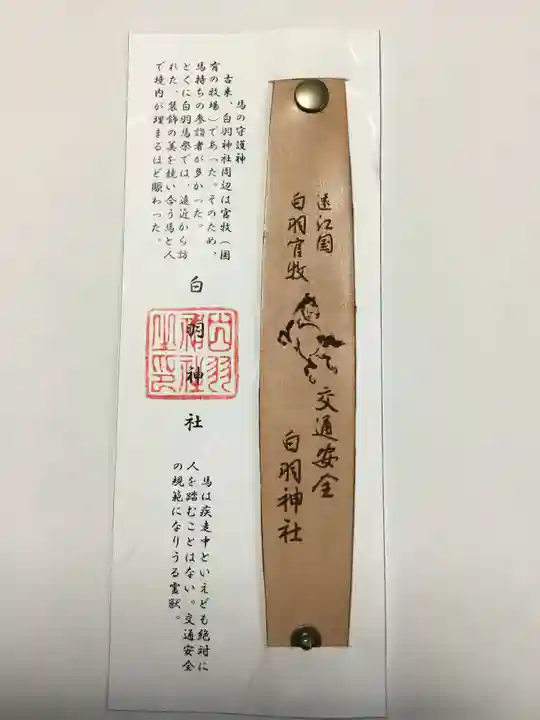 遠江国
白羽官牧
交通安全
白羽神社
馬の守護神
古来、白羽神社周辺は官牧（国
有の牧場）であった。そのため、
馬持ちの参詣者が多かった。
とくに白羽馬祭では、遠近から訪
れた、装飾の美を競い合う馬と人
で境内が埋まるほど賑わった。
白羽神社
馬は疾走中といえども絶対に
人を踏むことはない。交通安全
の規範になりうる霊獣。